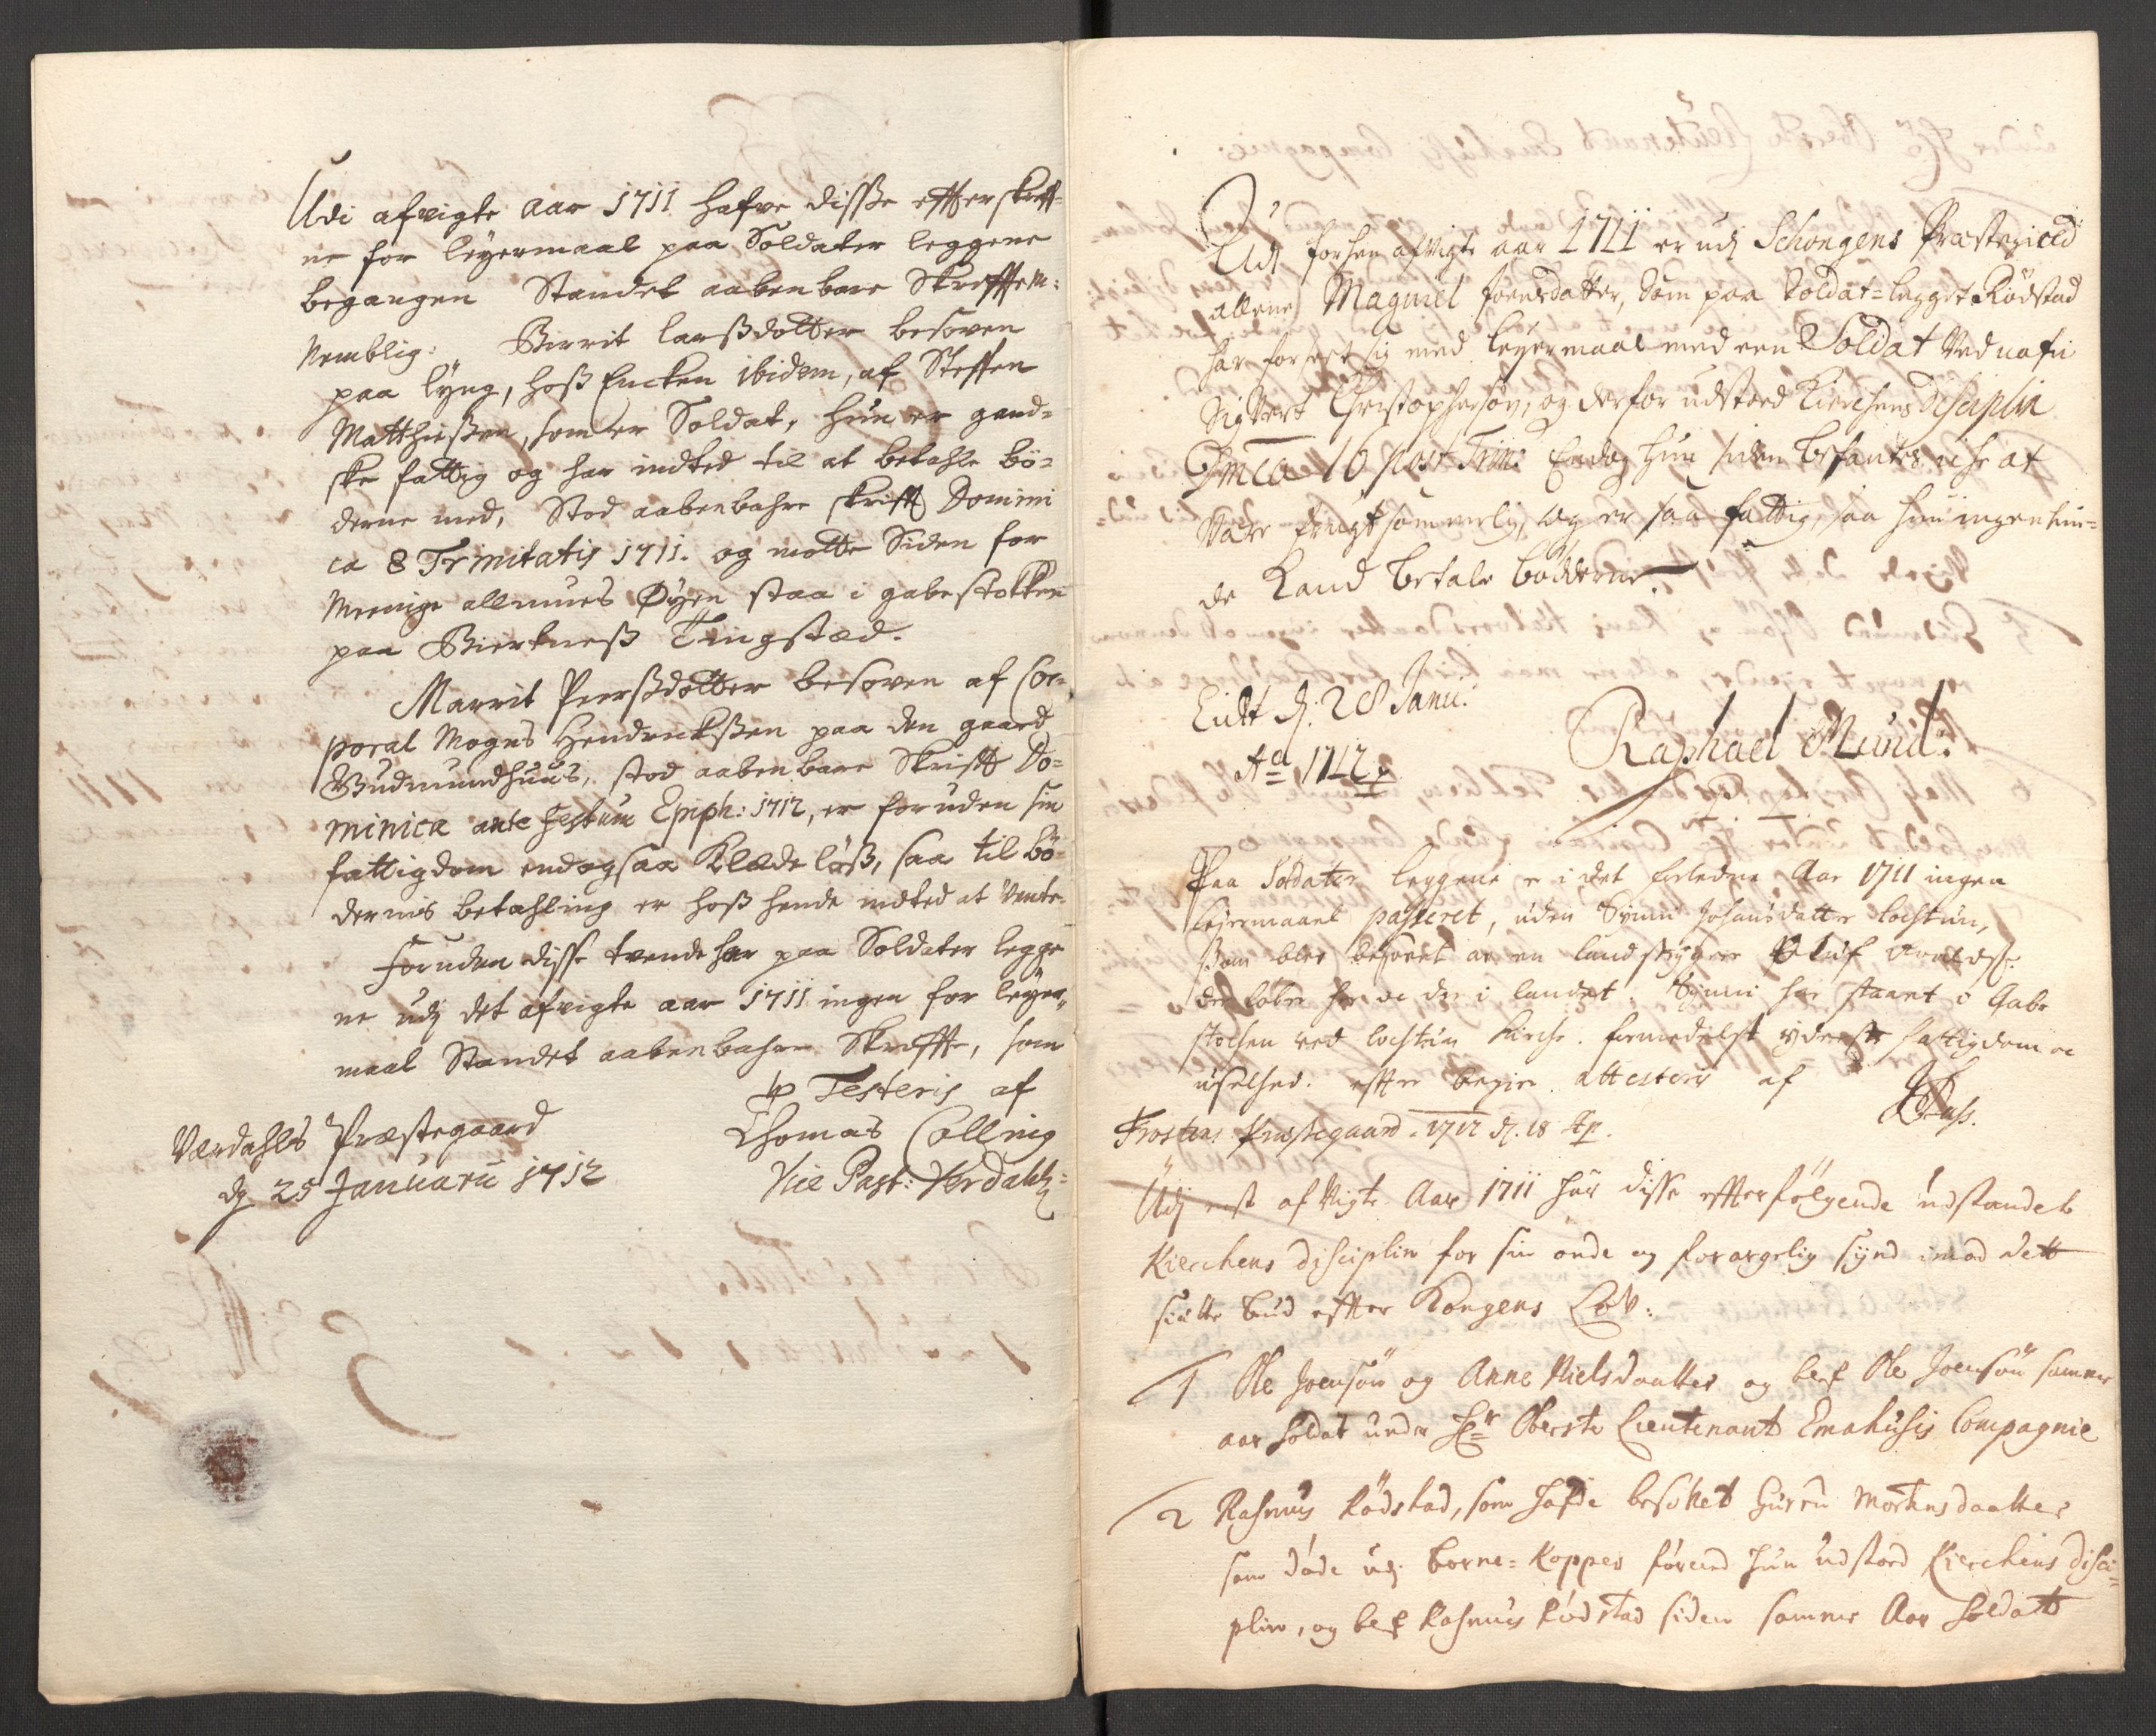 Udi afvigte aar 1711 hafve disse effterskreff-
ne for leyermaal paa Soldater leggene
begangen Standet aabenbare Skrefftem:
Nemblig: Birrit larssdotter besoven
paa lyng, hoss Encken ibidem, af Steffen
Matthiessen, som er Soldat, hun er gand-
ske fattig og har indted til at betahle bö-
derne med, Stod aabenbahre skrifft Domini
ca 8 Trinitatis 1711. og motte Siden for
Meenige allmues Øyen staa i gabestokken
paa Bierkness Tingstæd.
Marrit Peerssdotter besoven af Cor-
poral Mogns Hendrickssen paa den gaard
Gudmundhuus, stod aabenbare Skrifft Do-
minica ante festum Epiph: 1712, er foruden sin
fattigdom endogsaa Klædelöss, saa til bö-
dernis betahling er hoss hende indted at vente.
Foruden disse tvende har paa Soldater legge
ne udj det afvigte aar 1711 ingen for leyer-
maal Standet aabenbahre Skrefftte, som
Testeris af
Værdahls Præstegaard Thomas Colling
dj 25 Januarii 1712 Vice Past: Verdahl:
Udj forhen afvigte aar 1711 er udj Schongens Præstegield
allene Magnil Joensdatter, Som paa Soldat-legget Rödstad
har forseet sig med leyermaal med een Soldat Ved nafn
Sigvert Christophersøn, og derfor udstoed Kierchens Disciplin
Dmca 16 post Trin: Endog hun siden befantes iche at
være frugtsommelig, og er saa fattig, saa hun ingenlun-
de Kand betale bödderne.
Eidtt dj. 28 Janu:
Ao 1712 Raphael Mund:
Paa Soldater leggene er i det forledne Aar 1711 ingen
Leyermaal passeret, uden Synni Johansdatter lochtun,
som blev besovet av en landstryger Oluf
der löber her oc der i landet. Synni har staaet i Gabe
stochen ved lochtun Kirche. formedelst yderste fattigdom oc
uselhed. effter begier attesteris af
Frostens Præstegaard. 1712 dj. 18 Ap.
Udj nest afvigte Aar 1711 har disse effterfölgende udstandet
Kierchens disciplin for sin onde og forargelig synd imod dett
siette bud effter Kongens Lov:
1 Ole Joensön og Anne Nielsdaatter og blef Ole Joensön samme
aar soldat under Hr Oberste Lieutenant Emahusis Compagnie
2 Rasmus Rödstad, som hafde besovet Guru Mortensdaatter
som döde udj borne-Kopper förend hun udstoed Kierchens disci-
plin, og blef Rasmus Rödstad siden samme Aar soldatt